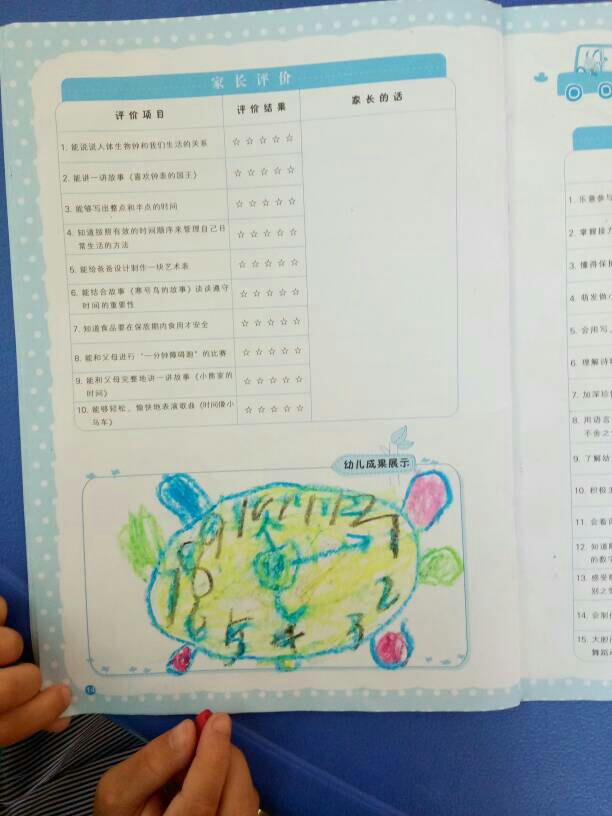 家长评价
评价项目 评价结果 家长的话
1. 能说说人体生物钟和我们生活的关系 ☆☆☆☆☆
2. 能讲一讲故事《喜欢钟表的国王》 ☆☆☆☆☆
3. 能够写出整点和半点的时间 ☆☆☆☆☆
4. 知道按照有效的时间顺序来管理自己日
常生活的方法 ☆☆☆☆☆
5. 能给爸爸设计制作一块艺术表 ☆☆☆☆☆
6. 能结合故事《寒号鸟的故事》谈谈遵守
时间的重要性 ☆☆☆☆☆
7. 知道食品要在保质期内食用才安全 ☆☆☆☆☆
8. 能和父母进行“一分钟障碍跑”的比赛 ☆☆☆☆☆
9. 能和父母完整地讲一讲故事《小熊家的
时间》 ☆☆☆☆☆
10. 能够轻松、愉快地表演歌曲《时间像小
马车》 ☆☆☆☆☆
幼儿成果展示
9 10 11 12 1
8 2
7 3
5 4
14
1. 乐意参与
2. 掌握接力
3. 懂得保
4. 萌发做
5. 会用写、
6. 理解诗
7. 加深珍
8. 用语言
不舍之
9. 了解幼
10. 积极主
11. 会看
12. 知道
的数
13. 感受
别之
14. 会制
15. 大胆
舞蹈